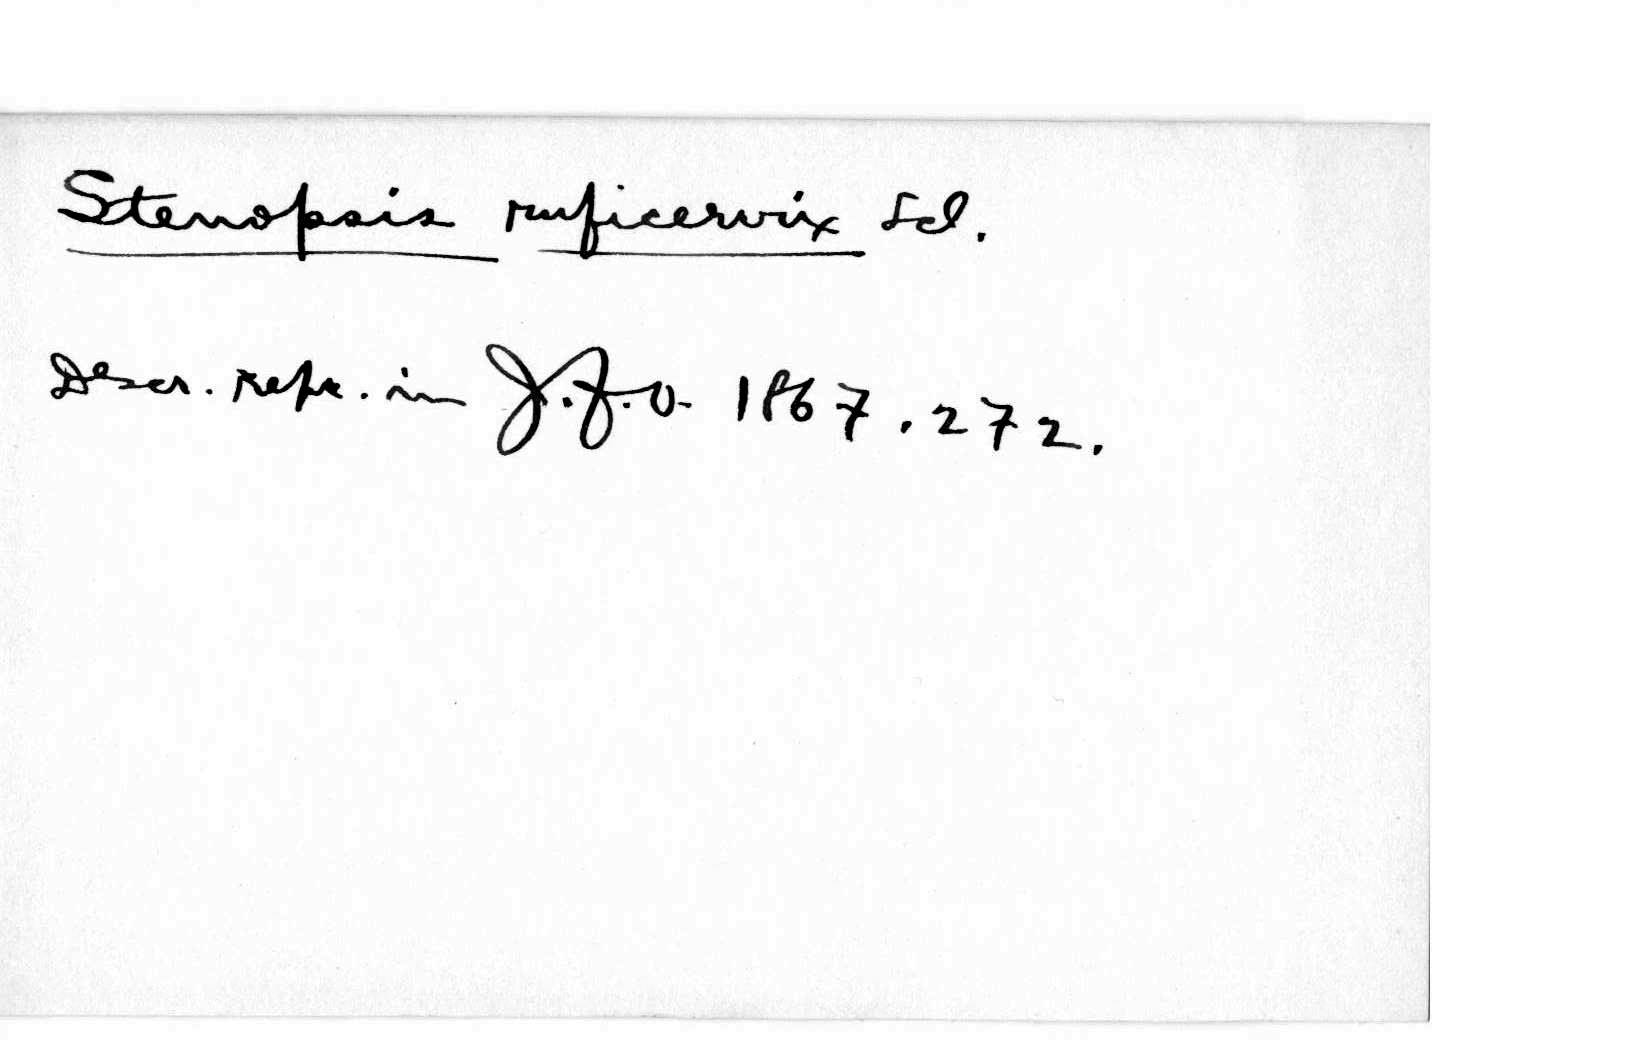 Stenopsis ruficervix Scl.
Descr. repr. in J.f.O. 1867. 272.